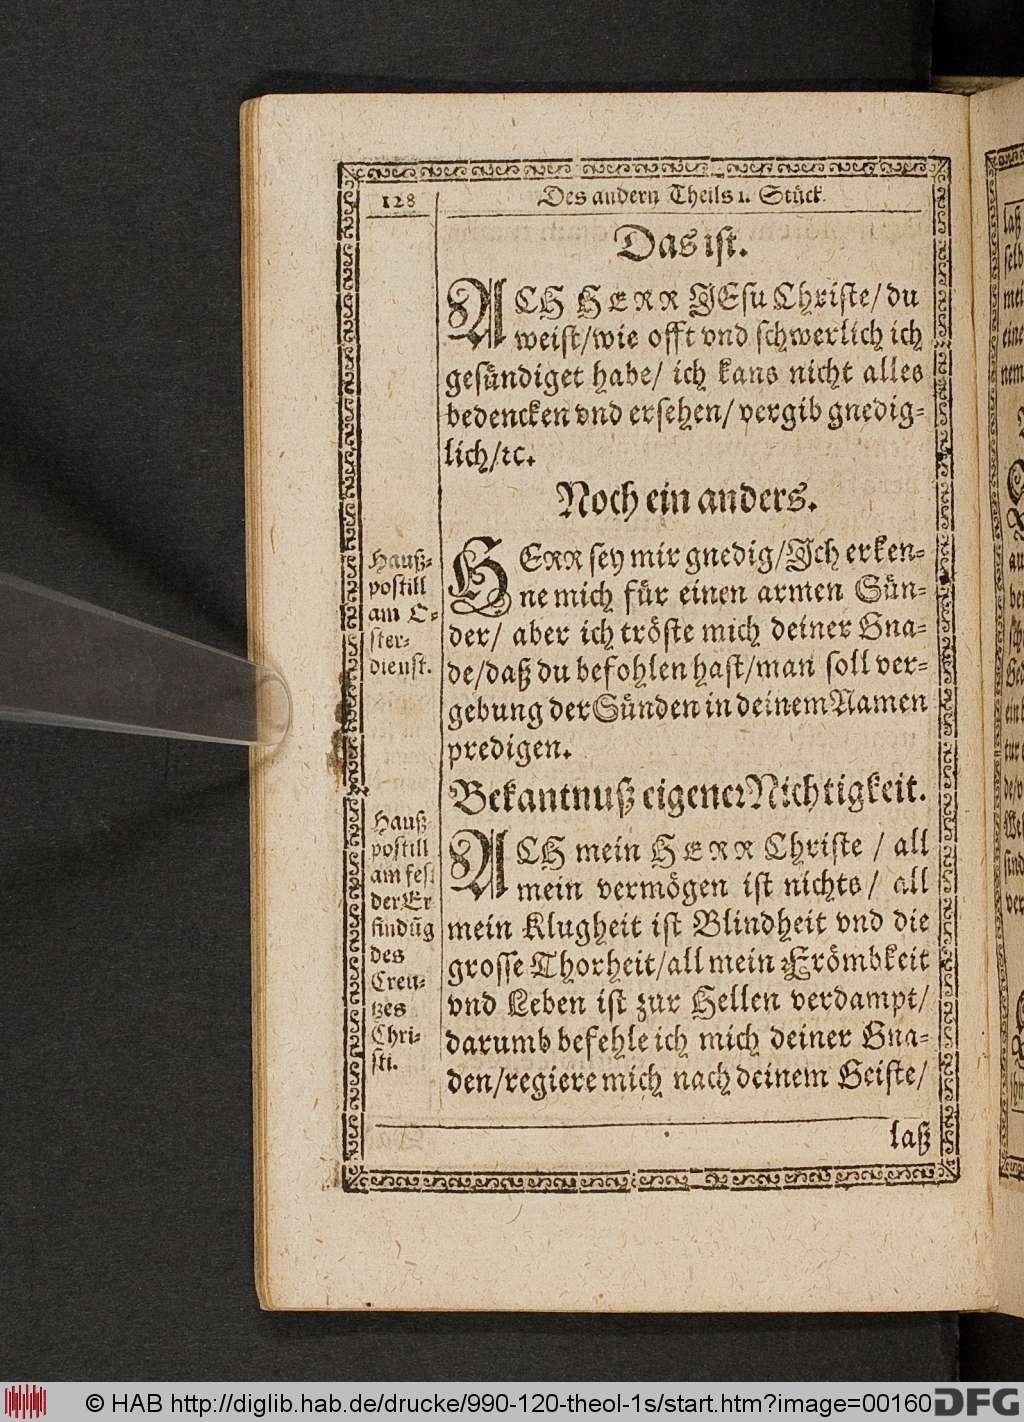 128
Des andern Theils 1. Stück.
Das ist.
ACH HERR JEsu Christe/ du
weist/ wie offt vnd schwerlich ich
gesündiget habe/ ich kans nicht alles
bedencken vnd ersehen/ vergib gnedig-
lich/ ꝛc.
Noch ein anders.
Hauß-
postill
am O-
ster-
dienst.
HERR sey mir gnedig/ Ich erken-
ne mich für einen armen Sün-
der/ aber ich tröste mich deiner Gna-
de/ daß du befohlen hast/ man soll ver-
gebung der Sünden in deinem Namen
predigen.
Bekantnuß eigener Nichtigkeit.
Hauß-
postill
am fest
der Er
findūg
des
Creu-
tzes
Chri-
sti.
ACH mein HERR Christe / all
mein vermögen ist nichts/ all
mein Klugheit ist Blindheit vnd die
grosse Thorheit/ all mein Frömbkeit
vnd Leben ist zur Hellen verdampt/
darumb befehle ich mich deiner Gna-
den/ regiere mich nach deinem Geiste/
laß
© HAB http://diglib.hab.de/drucke/990-120-theol-1s/start.htm?image=00160
DFG